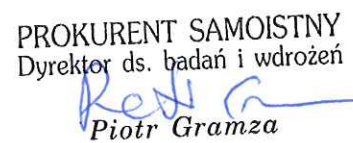 PROKURENT SAMOISTNY
Dyrektor ds. badań i wdrożeń
Piotr Gramza